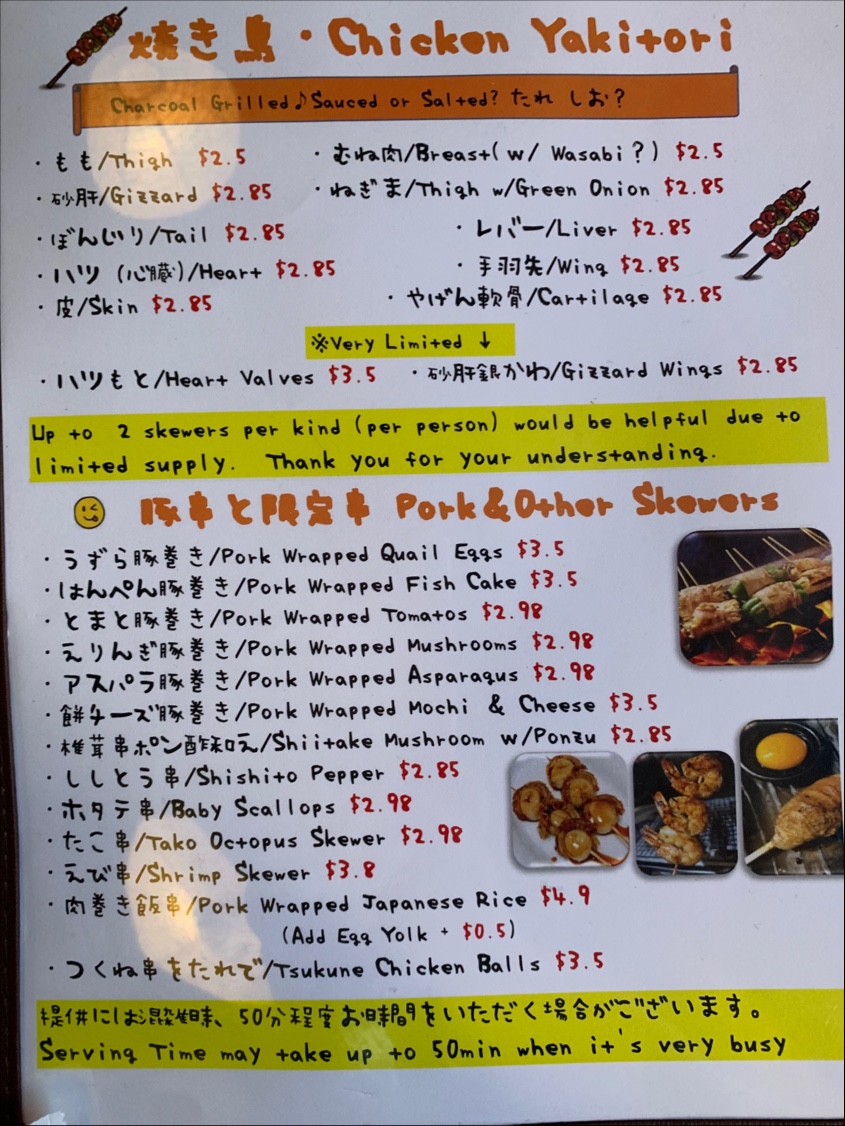 焼き鳥・Chicken Yakitori
Charcoal Grilled♪Sauced or Salted? たれ しお?
・もも/Thigh $2.5 ・むね肉/Breast( w/ Wasabi?) $2.5
・砂肝/Gizzard $2.85 ・ねぎま/Thigh w/Green Onion $2.85
・ぼんじり/Tail $2.85 ・レバー/Liver $2.85
・ハツ (心臓)/Heart $2.85 ・手羽先/Wing $2.85
・皮/Skin $2.85 ・やげん軟骨/Cartilage $2.85
※Very Limited ↓
・ハツもと/Heart Valves $3.5 ・砂肝銀かわ/Gizzard Wings $2.85
Up to 2 skewers per kind (per person) would be helpful due to
limited supply. Thank you for your understanding.
豚串と限定串 Pork&Other Skewers
・うずら豚巻き/Pork Wrapped Quail Eggs $3.5
・はんぺん豚巻き/Pork Wrapped Fish Cake $3.5
・とまと豚巻き/Pork Wrapped Tomatos $2.98
・えりんぎ豚巻き/Pork Wrapped Mushrooms $2.98
・アスパラ豚巻き/Pork Wrapped Asparagus $2.98
・餅チーズ豚巻き/Pork Wrapped Mochi & Cheese $3.5
・椎茸串ポン酢和え/Shiitake Mushroom w/Ponzu $2.85
・ししとう串/Shishito Pepper $2.85
・ホタテ串/Baby Scallops $2.98
・たこ串/Tako Octopus Skewer $2.98
・えび串/Shrimp Skewer $3.8
・肉巻き飯串/Pork Wrapped Japanese Rice $4.9
(Add Egg Yolk + $0.5)
・つくね串をたれで/Tsukune Chicken Balls $3.5
提供には混雑時、50分程度お時間をいただく場合がございます。
Serving Time may take up to 50min when it's very busy